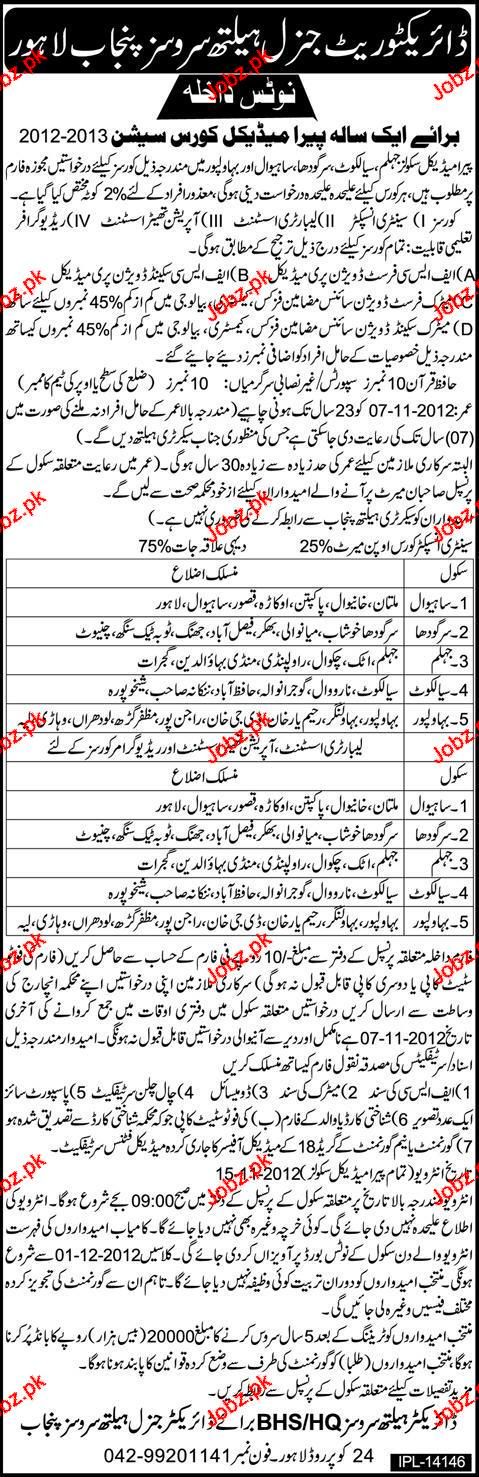 ڈائریکٹوریٹ جنرل ہیلتھ سروسز پنجاب لاہور
نوٹس داخلہ
برائے ایک سالہ پیرا میڈیکل کورس سیشن 2012-2013
پیرا میڈیکل سکولز جہلم، سیالکوٹ، سرگودھا، ساہیوال اور بہاولپور میں مندرجہ ذیل کورسز کیلئے درخواستیں مجوزہ فارم
پر مطلوب ہیں، ہر کورس کیلئے علیحدہ علیحدہ درخواست دینی ہوگی، معذور افراد کے لئے 2% کوٹہ مختص کیا گیا ہے۔
کورسز I) سینٹری انسپکٹر II) لیبارٹری اسسٹنٹ III) آپریشن تھیٹر اسسٹنٹ IV) ریڈیو گرافر
تعلیمی قابلیت: تمام کورسز کیلئے درج ذیل ترجیح کے مطابق ہوگی۔
A) ایف ایس سی فرسٹ ڈویژن پری میڈیکل B) ایف ایس سی سیکنڈ ڈویژن پری میڈیکل
C) میٹرک فرسٹ ڈویژن سائنس مضامین فزکس، کیمسٹری، بیالوجی میں کم از کم 45% نمبروں کیلئے ساتھ
D) میٹرک سیکنڈ ڈویژن سائنس مضامین فزکس، کیمسٹری، بیالوجی میں کم از کم 45% نمبروں کیساتھ
مندرجہ ذیل خصوصیات کے حامل افراد کو اضافی نمبرز دیئے جائیے گے۔
حافظ قرآن 10 نمبرز سپورٹس/غیر نصابی سرگرمیاں: 10 نمبرز (ضلع کی سطح یا اوپر کی ٹیم کا ممبر)
عمر: 07-11-2012 کو 23 سال تک ہونی چاہیے (مندرجہ بالا عمر کے حامل افراد نہ ملنے کی صورت میں
(07) سال تک کی رعایت دی جاسکتی ہے جس کی منظوری جناب سیکرٹری ہیلتھ دیں گے۔)
البتہ سرکاری ملازمین کیلئے عمر کی حد زیادہ سے زیادہ 30 سال ہوگی۔ (عمر میں رعایت متعلقہ سکول کے
پرنسپل صاحبان میرٹ پر آنے والے امیدواران کیلئے از خود محکمہ صحت سے لیں گے۔
امیدواران کو سیکرٹری ہیلتھ پنجاب سے رابطہ کرنے کی ضروری نہیں ہے۔)
سینٹری انسپکٹر کورس اوپن میرٹ 25% دیہی علاقہ جات 75%
سکول منسلک اضلاع
1۔ ساہیوال ملتان، خانیوال، پاکپتن، اوکاڑہ، قصور، ساہیوال، لاہور
2۔ سرگودھا سرگودھا خوشاب، میانوالی، بھکر، فیصل آباد، جھنگ، ٹوبہ ٹیک سنگھ، چنیوٹ
3۔ جہلم جہلم، اٹک، چکوال، راولپنڈی، منڈی بہاؤ الدین، گجرات
4۔ سیالکوٹ سیالکوٹ، نارووال، گوجرانوالہ، حافظ آباد، ننکانہ صاحب، شیخوپورہ
5۔ بہاولپور بہاولپور، بہاولنگر، رحیم یار خان، ڈی جی خان، راجن پور، مظفر گڑھ، لودھراں، وہاڑی، لیہ
لیبارٹری اسسٹنٹ، آپریشن تھیٹر اسسٹنٹ اور ریڈیو گرافر کورسز کے لئے
سکول منسلک اضلاع
1۔ ساہیوال ملتان، خانیوال، پاکپتن، اوکاڑہ، قصور، ساہیوال، لاہور
2۔ سرگودھا سرگودھا خوشاب، میانوالی، بھکر، فیصل آباد، جھنگ، ٹوبہ ٹیک سنگھ، چنیوٹ
3۔ جہلم جہلم، اٹک، چکوال، راولپنڈی، منڈی بہاؤ الدین، گجرات
4۔ سیالکوٹ سیالکوٹ، نارووال، گوجرانوالہ، حافظ آباد، ننکانہ صاحب، شیخوپورہ
5۔ بہاولپور بہاولپور، بہاولنگر، رحیم یار خان، ڈی جی خان، راجن پور، مظفر گڑھ، لودھراں، وہاڑی، لیہ
فارم داخلہ متعلقہ پرنسپل کے دفتر سے مبلغ -/10 روپے فی فارم کے حساب سے حاصل کریں (فارم کی فوٹو
سٹیٹ کاپی یا دوسری کاپی قابل قبول نہ ہوگی) سرکاری ملازمین اپنی درخواستیں اپنے محکمہ انچارج کی
وساطت سے ارسال کریں درخواستیں متعلقہ سکول میں دفتری اوقات میں جمع کروانے کی آخری
تاریخ 07-11-2012 ہے نامکمل اور دیر سے آنیوالی درخواستیں قابل قبول نہ ہونگی۔ امیدوار مندرجہ ذیل
اسناد/سرٹیفکیٹس کی مصدقہ نقول فارم کیساتھ منسلک کریں
1) ایف ایس سی کی سند 2) میٹرک کی سند 3) ڈومیسائل 4) چال چلن سرٹیفکیٹ 5) پاسپورٹ سائز
ایک عدد تصویر 6) شناختی کارڈ یا والد کے فارم (ب) کی فوٹو سٹیٹ کاپی جو کہ محکمہ شناختی کارڈ سے تصدیق شدہ ہو
7) گورنمنٹ یا نیم گورنمنٹ کے گریڈ 18 کے میڈیکل آفیسر کا جاری کردہ میڈیکل فٹنس سرٹیفکیٹ۔
تاریخ انٹرویو (تمام پیرا میڈیکل سکولز) 15-11-2012
انٹرویو مندرجہ بالا تاریخ پر متعلقہ سکول کے پرنسپل کے دفتر میں صبح 09:00 بجے شروع ہوگا۔ انٹرویو کی
اطلاع علیحدہ نہیں دی جائے گی۔ کوئی خرچہ وغیرہ بھی نہیں دیا جائے گا۔ کامیاب امیدواروں کی فہرست
انٹرویو والے دن سکول کے نوٹس بورڈ پر آویزاں کر دی جائے گی۔ کلاسیں 01-12-2012 سے شروع
ہونگی۔ منتخب امیدواروں کو دوران تربیت کوئی وظیفہ نہیں دیا جائے گا۔ تاہم ان سے گورنمنٹ کی تجویز کردہ
مختلف فیسیں وغیرہ لی جائیں گی۔
منتخب امیدواروں کو ٹریننگ کے بعد 5 سال سروس کرنے کا مبلغ 20000 (بیس ہزار) روپے کا بانڈ پر کرنا
ہوگا، منتخب امیدواروں (طلبا) کو گورنمنٹ کی طرف سے وضع کردہ قوانین کا پابند ہونا ہوگا۔
مزید تفصیلات کیلئے متعلقہ سکول کے پرنسپل سے رابطہ کریں۔
ڈائریکٹر ہیلتھ سروسز BHS/HQ برائے ڈائریکٹر جنرل ہیلتھ سروسز پنجاب
24 کوپر روڈ لاہور۔ فون نمبر 042-99201141
IPL-14146
Jobz.pk